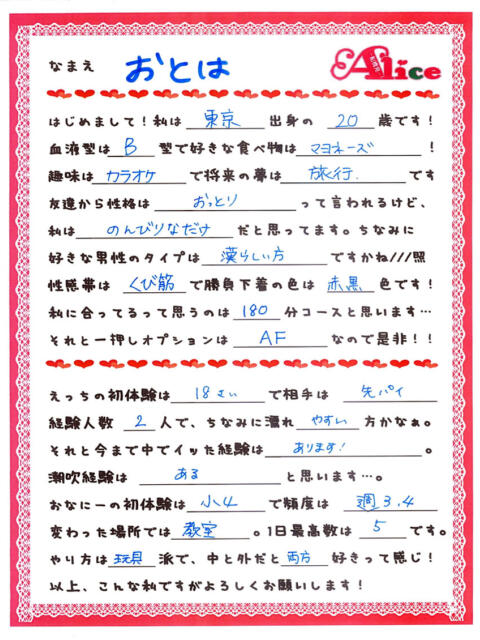 なまえ おとは Alice
はじめまして！私は 東京 出身の 20 歳です！
血液型は B 型で好きな食べ物は マヨネーズ ！
趣味は カラオケ で将来の夢は 旅行. です
友達から性格は おっとり って言われるけど、
私は のんびりなだけ だと思ってます。ちなみに
好きな男性のタイプは 漢らしい方 ですかね///照
性感帯は くび筋 で勝負下着の色は 赤黒 色です！
私に合ってるって思うのは 180 分コースと思います…
それと一押しオプションは AF なので是非！！
えっちの初体験は 18さい で相手は 先パイ
経験人数 2 人で、ちなみに濡れ やすい 方かなぁ。
それと今まで中でイッた経験は あります！ 。
潮吹経験は ある と思います…。
やり方は 玩具 派で、中と外だと 両方 好きって感じ！
以上、こんな私ですがよろしくお願いします！